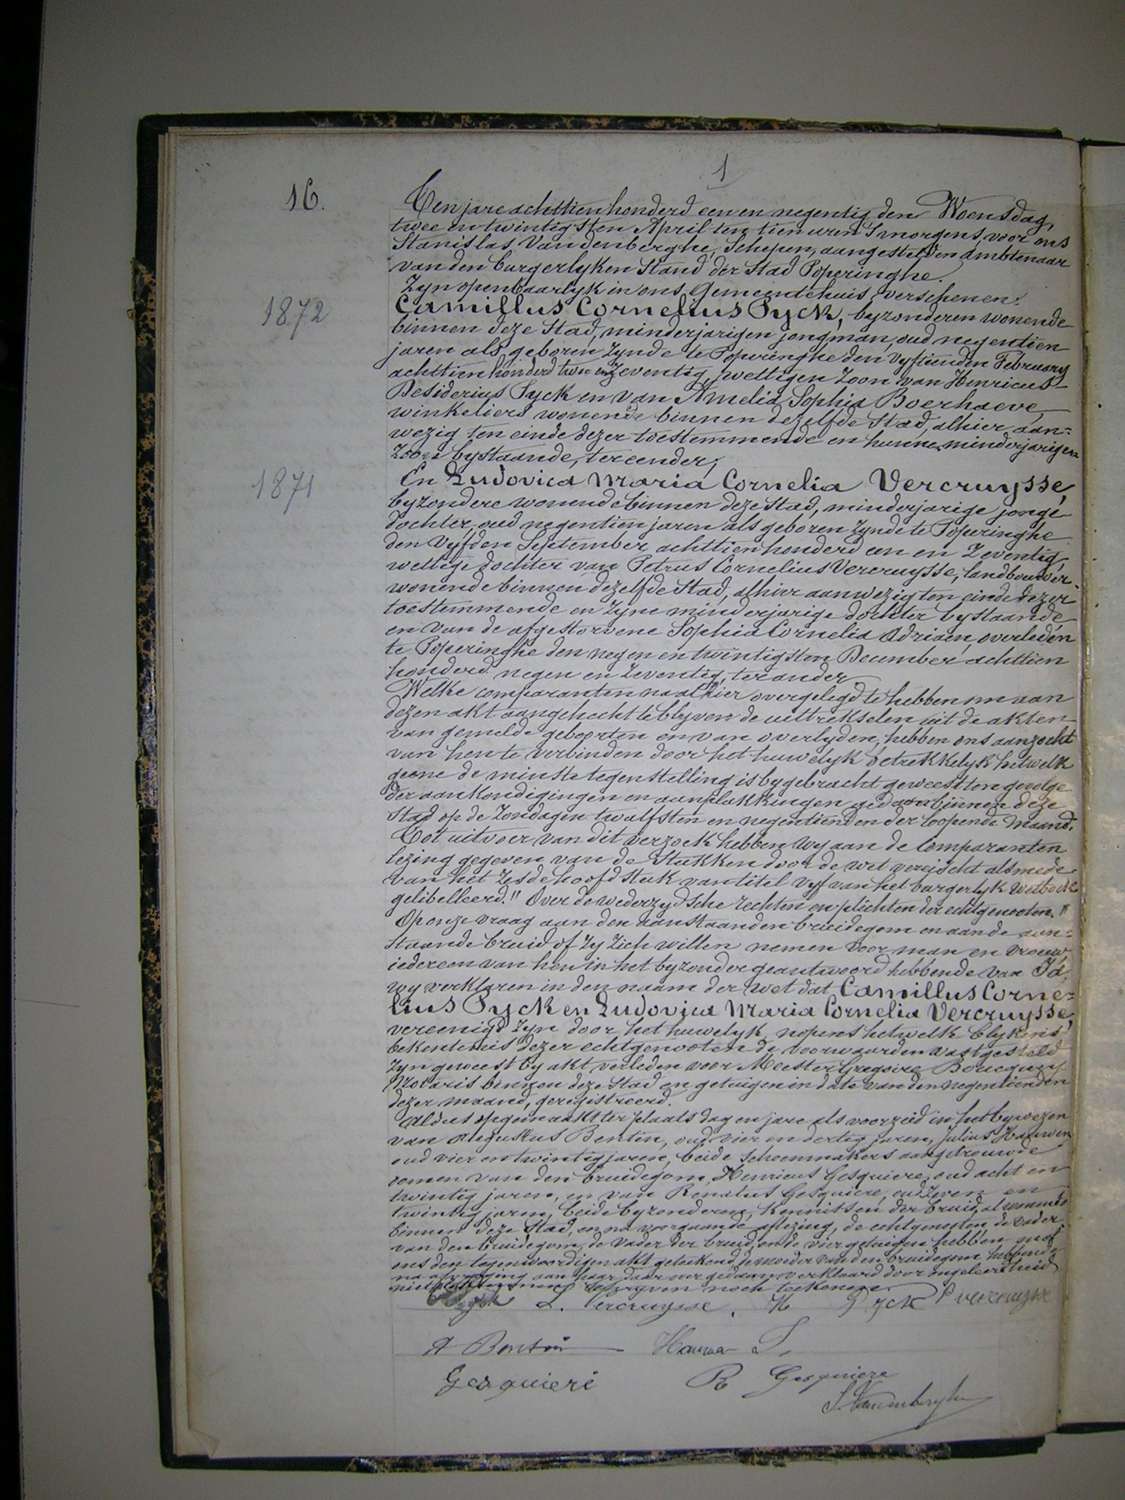 1
16.
Ten jare achttien honderd een en negentig den Woensdag,
twee en twintigsten April ten tien uren smorgens, voor ons
Stanislas Vandenberghe, Schepen, aangestelden ambtenaar
van den burgerlyken Stand der Stad Poperinghe.
Zyn openbaarlyk in ons Gemeentehuis verschenen:
1872
Camillus Cornelius Pyck, byzonderen wonende
binnen deze Stad, minderjarigen jongman, oud negentien
jaren als geboren zynde te Poperinghe den vyftienden February
achttien honderd twee en zeventig, wettigen zoon van Henricus
Desiderius Pyck en van Amelia Sophia Boerhaeve
winkeliers wonende binnen dezelfde Stad, alhier aan=
wezig ten einde dezer toestemmende en hunne minderjarigen
zoon bystaande, ter eender,
1871
En Ludovica Maria Cornelia Vercruysse,
byzondere wonende binnen deze Stad, minderjarige jonge
dochter, oud negentien jaren als geboren zynde te Poperinghe
den vyfden September achttien honderd een en zeventig,
wettige dochter van Petrus Cornelius Vercruysse, landbouwer
wonende binnen dezelfde Stad, alhier aanwezig ten einde dezer
toestemmende en zyne minderjarige dochter bystaande
en van de afgestorvene Sophia Cornelia Adriaen, overleden
te Poperinghe den negen en twintigsten December achttien
honderd negen en zeventig, ter ander
Welke comparanten na alhier overgelegd te hebben om aan
dezen akt aangehecht te blyven de uittrekselen uit de akten
van gemelde geboorten en van overlyden, hebben ons aanzocht
van hen te verbinden door het huwelyk betrekkelyk hetwelk
geene de minste tegenstelling is bygebracht geweest ten gevolge
der aankondigingen en aanplakkingen gedaan binnen deze
Stad op de Zondagen twalfsten en negentienden der loopende maand.
Tot uitvoer van dit verzoek hebben wy aan de Comparanten
lezing gegeven van de Stukken door de wet vereischt alsmede
van het zesde hoofdstuk van titel vyf van het burgerlyk wetboek
gelibelleerd: "Over de wederzydsche rechten en plichten der echtgenooten."
Op onze vraag aan den aanstaanden bruidegom en aan de aan=
staande bruid of zy zich willen nemen voor man en vrouw,
iedereen van hen in het byzonder geantwoord hebbende van Ja,
wy verklaren in den naam der wet dat Camillus Corne=
lius Pyck en Ludovica Maria Cornelia Vercruysse,
vereenigd zyn door het huwelyk, nopens hetwelk blykens
bekentenis dezer echtgenooten de voorwaarden vastgesteld
zyn geweest by akt verleden voor Meester Gregoire Boucquey
Notaris binnen deze Stad en getuigen in date van den negentienden
dezer maand, geregistreerd.
Aldus opgemaakt ter plaats dag en jare als voorzeid in het bywezen
van Augustus Bentein, oud vier en dertig jaren, Julius Hauwen
oud vier en twintig jaren, beide schoenmakers aangetrouwde
oomen van den bruidegom, Henricus Gesquiere, oud acht en
twintig jaren, en van Renatus Gesquiere, oud zeven en
twintig jaren, beide byzonderen, kennissen der bruid, al wonende
binnen deze Stad, en na voorgaande aflezing, de echtgenooten de vader
van den bruidegom, de vader der bruid, en de vier getuigen hebben met
ons den tegenwoordigen akt geteekend, de moeder van den bruidegom hebbende
na afvraging aan haar daar over gedaan verklaard door ongeleerdheid
niet te kunnen schryven noch teekenen.
C Pyck L. Vercruysse. H Pyck P vercruysse
A Bentein Hauwen J.
Gesquiere R Gesquiere
S. Vandenberghe